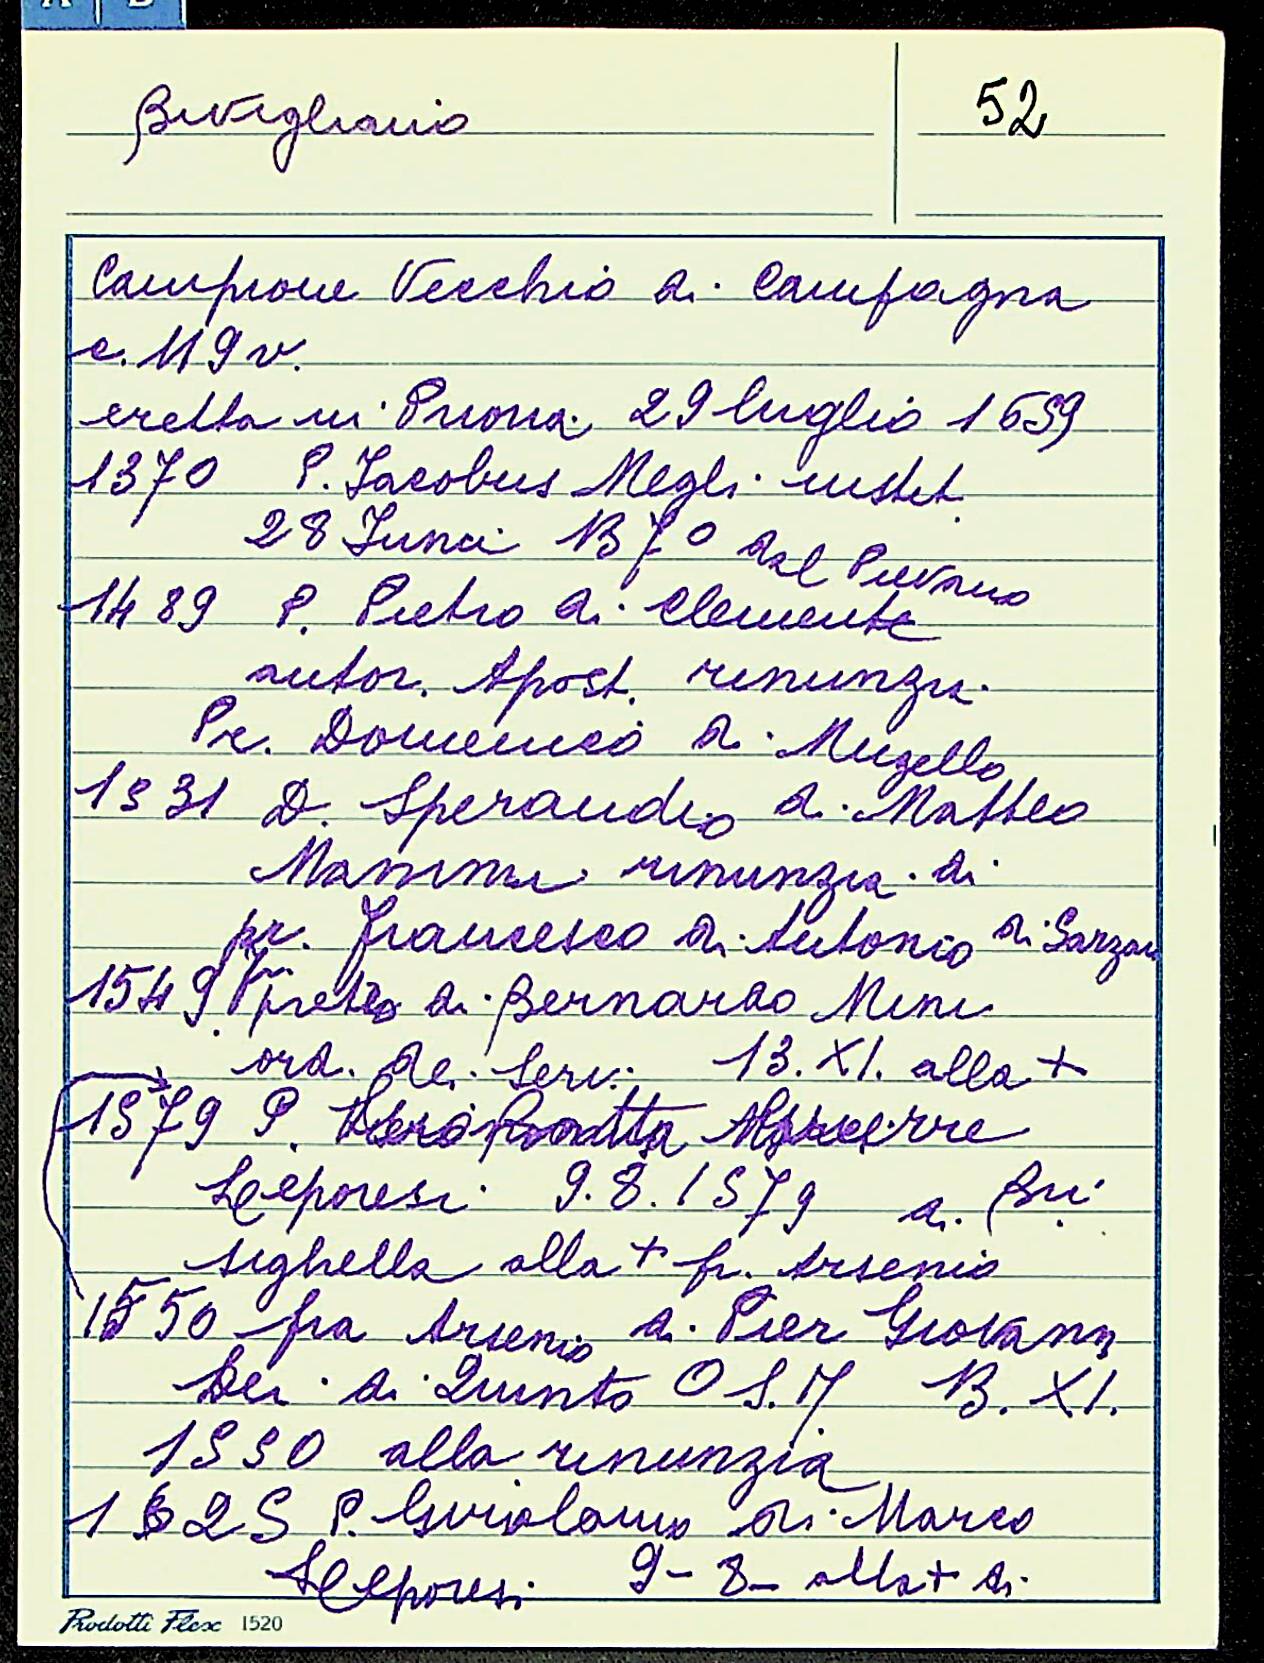 A B
Bivigliano
52
Campione Vecchio di Campagna
c. 119 v.
eretta in Prioria 29 luglio 1659
1370 P. Jacobus Megli instit.
28 Junii 1370 dal Pievano
1489 P. Pietro di Clemente
autor. Apost. rinunzia
Pr. Domenico di Mugello
1531 D. Sperandio di Matteo
rinunzia di
pr. Francesco di Antonio di
1549 di Bernardo Mini
ord. dei Servi 13. XI. alla +
1579 P.
Leporesi 9.8.1579 di Bri
sighella alla + fr. Arsenio
1550 fra Arsenio di Pier Giovanni
Dei di Quinto O S. M 13. XI.
1550 alla rinunzia
1625 P. Girolamo di Marco
Leporesi 9-8- alla + di
Prodotti Flex 1520